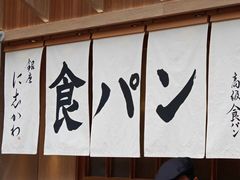 銀座
に志かわ
食パン
高級食パン